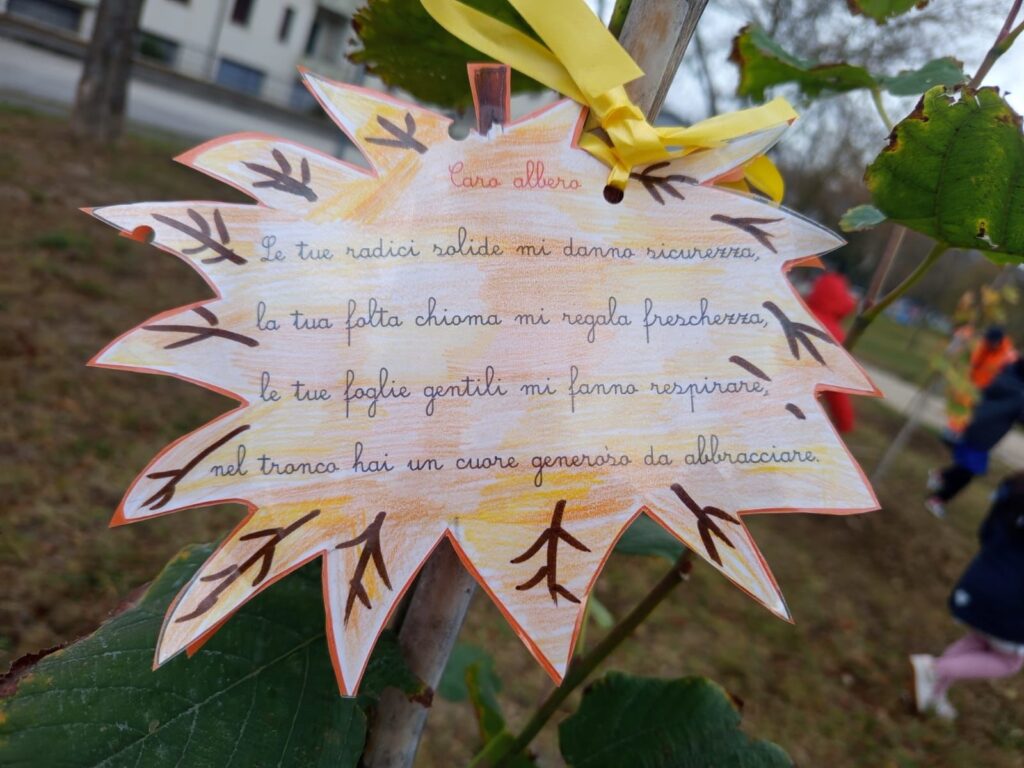 Caro albero
Le tue radici solide mi danno sicurezza,
la tua folta chioma mi regala freschezza,
le tue foglie gentili mi fanno respirare,
nel tronco hai un cuore generoso da abbracciare.